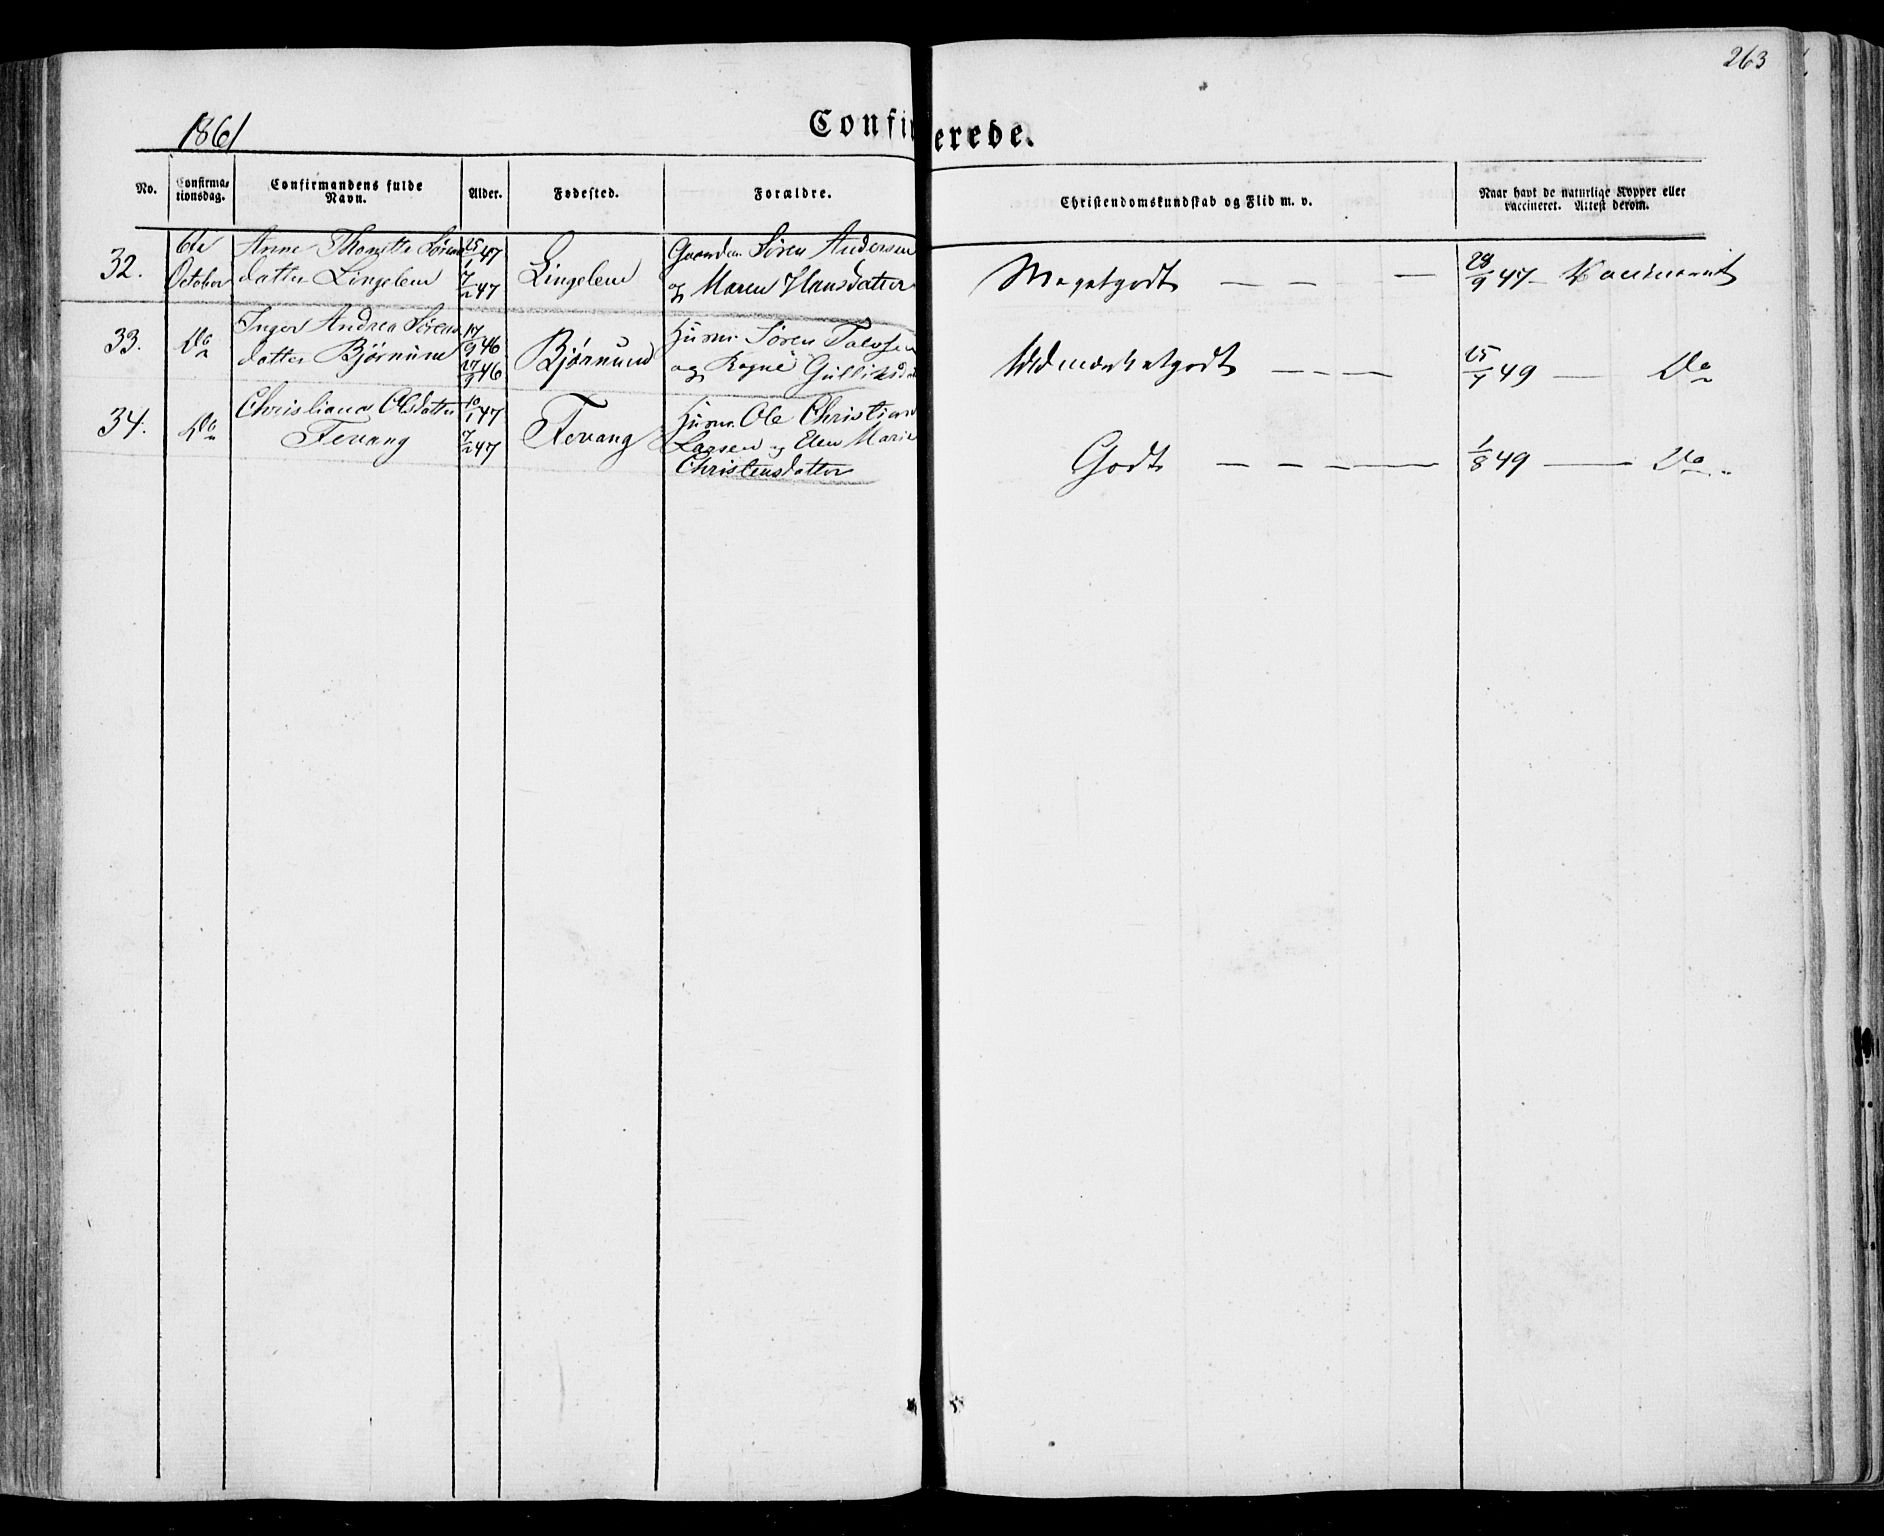 263
1861
Confirmerede.
No.
Confirma-
tionsdag.
Confirmandens fulde
Navn.
Alder.
Fødested.
Forældre.
Christendomskundskab og Flid m. v.
Naar havt de naturlige Kopper eller
vaccineret. Attest derom.
32.
6te
October
Anne Thonette Sørens
datter Lingelem
25/1 47
7/2 47
Lingelem
Gaardm. Søren Andersen
og Maren Hansdatter
Megetgodt — — — —
28/9 47 — Vaccineret
33.
Do
Inger Andrea Sørens
datter Bjørnum
17/9 46
27/9 46
Bjørnum
Husm. Søren
og Gulliksd
Udmærketgodt — — —
25/7 49 — Do
34.
Do
Christiane Olsdatter
Fevang
10/1 47
7/2 47
Fevang
Husm. Ole Christian
Larsen og Elen Marie
Christensdatter
Godt — — — —
1/8 49 — Do